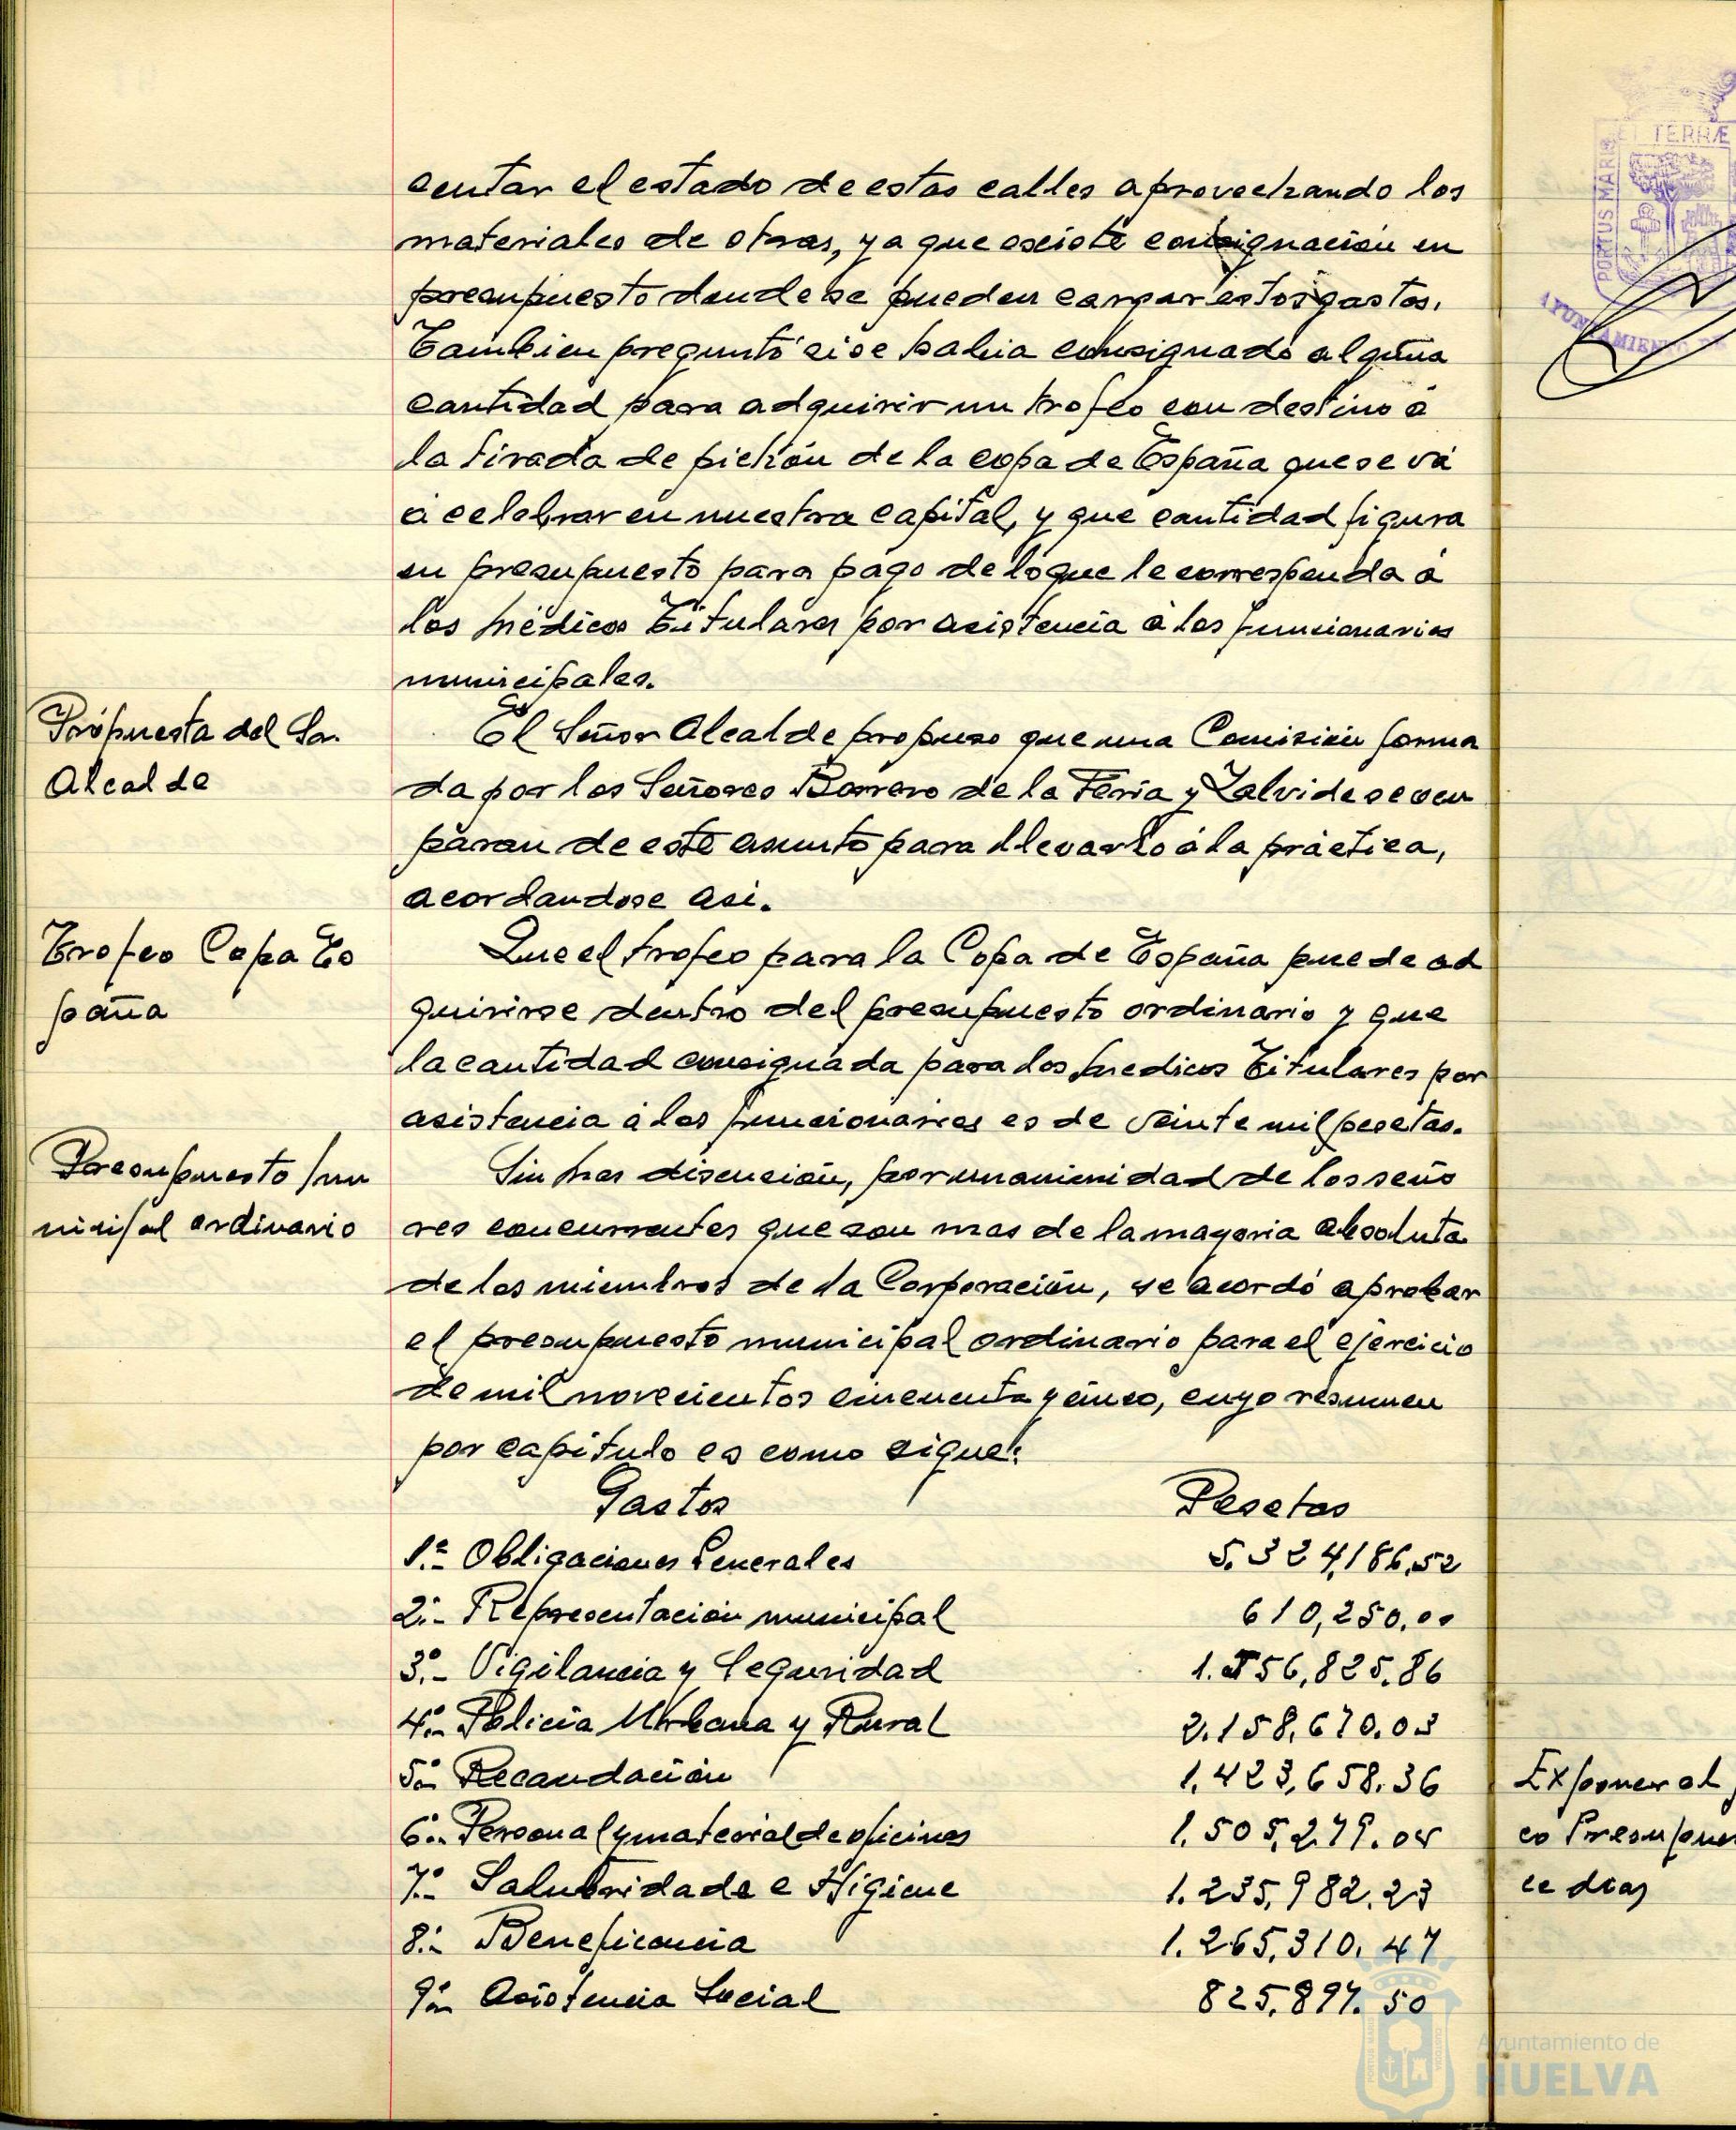 centar el estado de estas calles aprovechando los
materiales de otras, ya que existe consignación en
presupuesto donde se pueden cargar estos gastos.
Tambien preguntó si se habia consignado alguna
cantidad para adquirir un trofeo con destino á
la tirada de pichón de la copa de España que se vá
á celebrar en nuestra capital, y que cantidad figura
en presupuesto para pago de lo que le corresponda á
los médicos Titulares por asistencia á los funcionarios
municipales.
Propuesta del Sr.
Alcalde
El Señor Alcalde propuso que una Comisión forma
da por los Señores Borrero de la Feria y Zalvide se ocu
paran de este asunto para llevarlo á la práctica,
acordandose asi.
Trofeo Copa Es
paña
Que el trofeo para la Copa de España puede ad
quirirse dentro del presupuesto ordinario y que
la cantidad consignada para los medicos Titulares por
asistencia á los funcionarios es de veinte mil pesetas.
Presupuesto mu
nicipal ordinario
Sin mas discusión, por unanimidad de los seño
res concurrentes que son mas de la mayoria absoluta
de los miembros de la Corporación, se acordó aprobar
el presupuesto municipal ordinario para el ejercicio
de mil novecientos cincuenta y cinco, cuyo resumen
por capitulo es como sigue:
Gastos Pesetas
1.º- Obligaciones Generales 5.324,186,52
2.º- Representación municipal 610,250,00
3.º- Vigilancia y Seguridad 1.556,825.86
4.º- Policia Urbana y Rural 2.158,670.03
5.º- Recaudación 1.423,658.36
6.º- Personal y material de oficinas 1.505,279.05
7.º- Salubridade e Higiene 1.235,982.23
8.º- Beneficencia 1.265,310.47
9.º- Asistencia Social 825,897.50
ET TERRÆ
PORTUS MARIS
AYUNTAMIENTO DE
Exponer al
co Presupues
ce dias
Ayuntamiento de
HUELVA